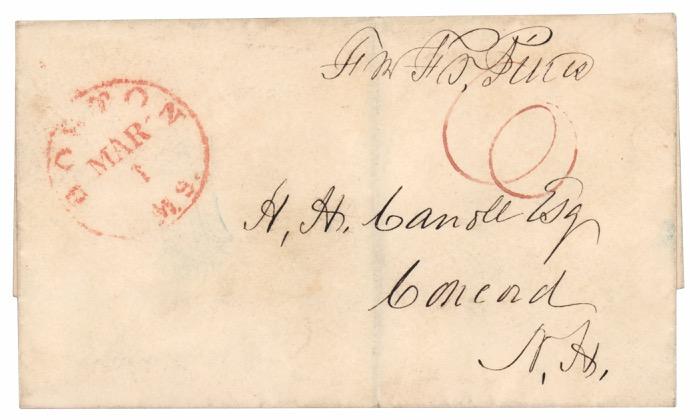 BOSTON
MAR
1
MS.
6
H. H. Carroll Esq
Concord
N. H.